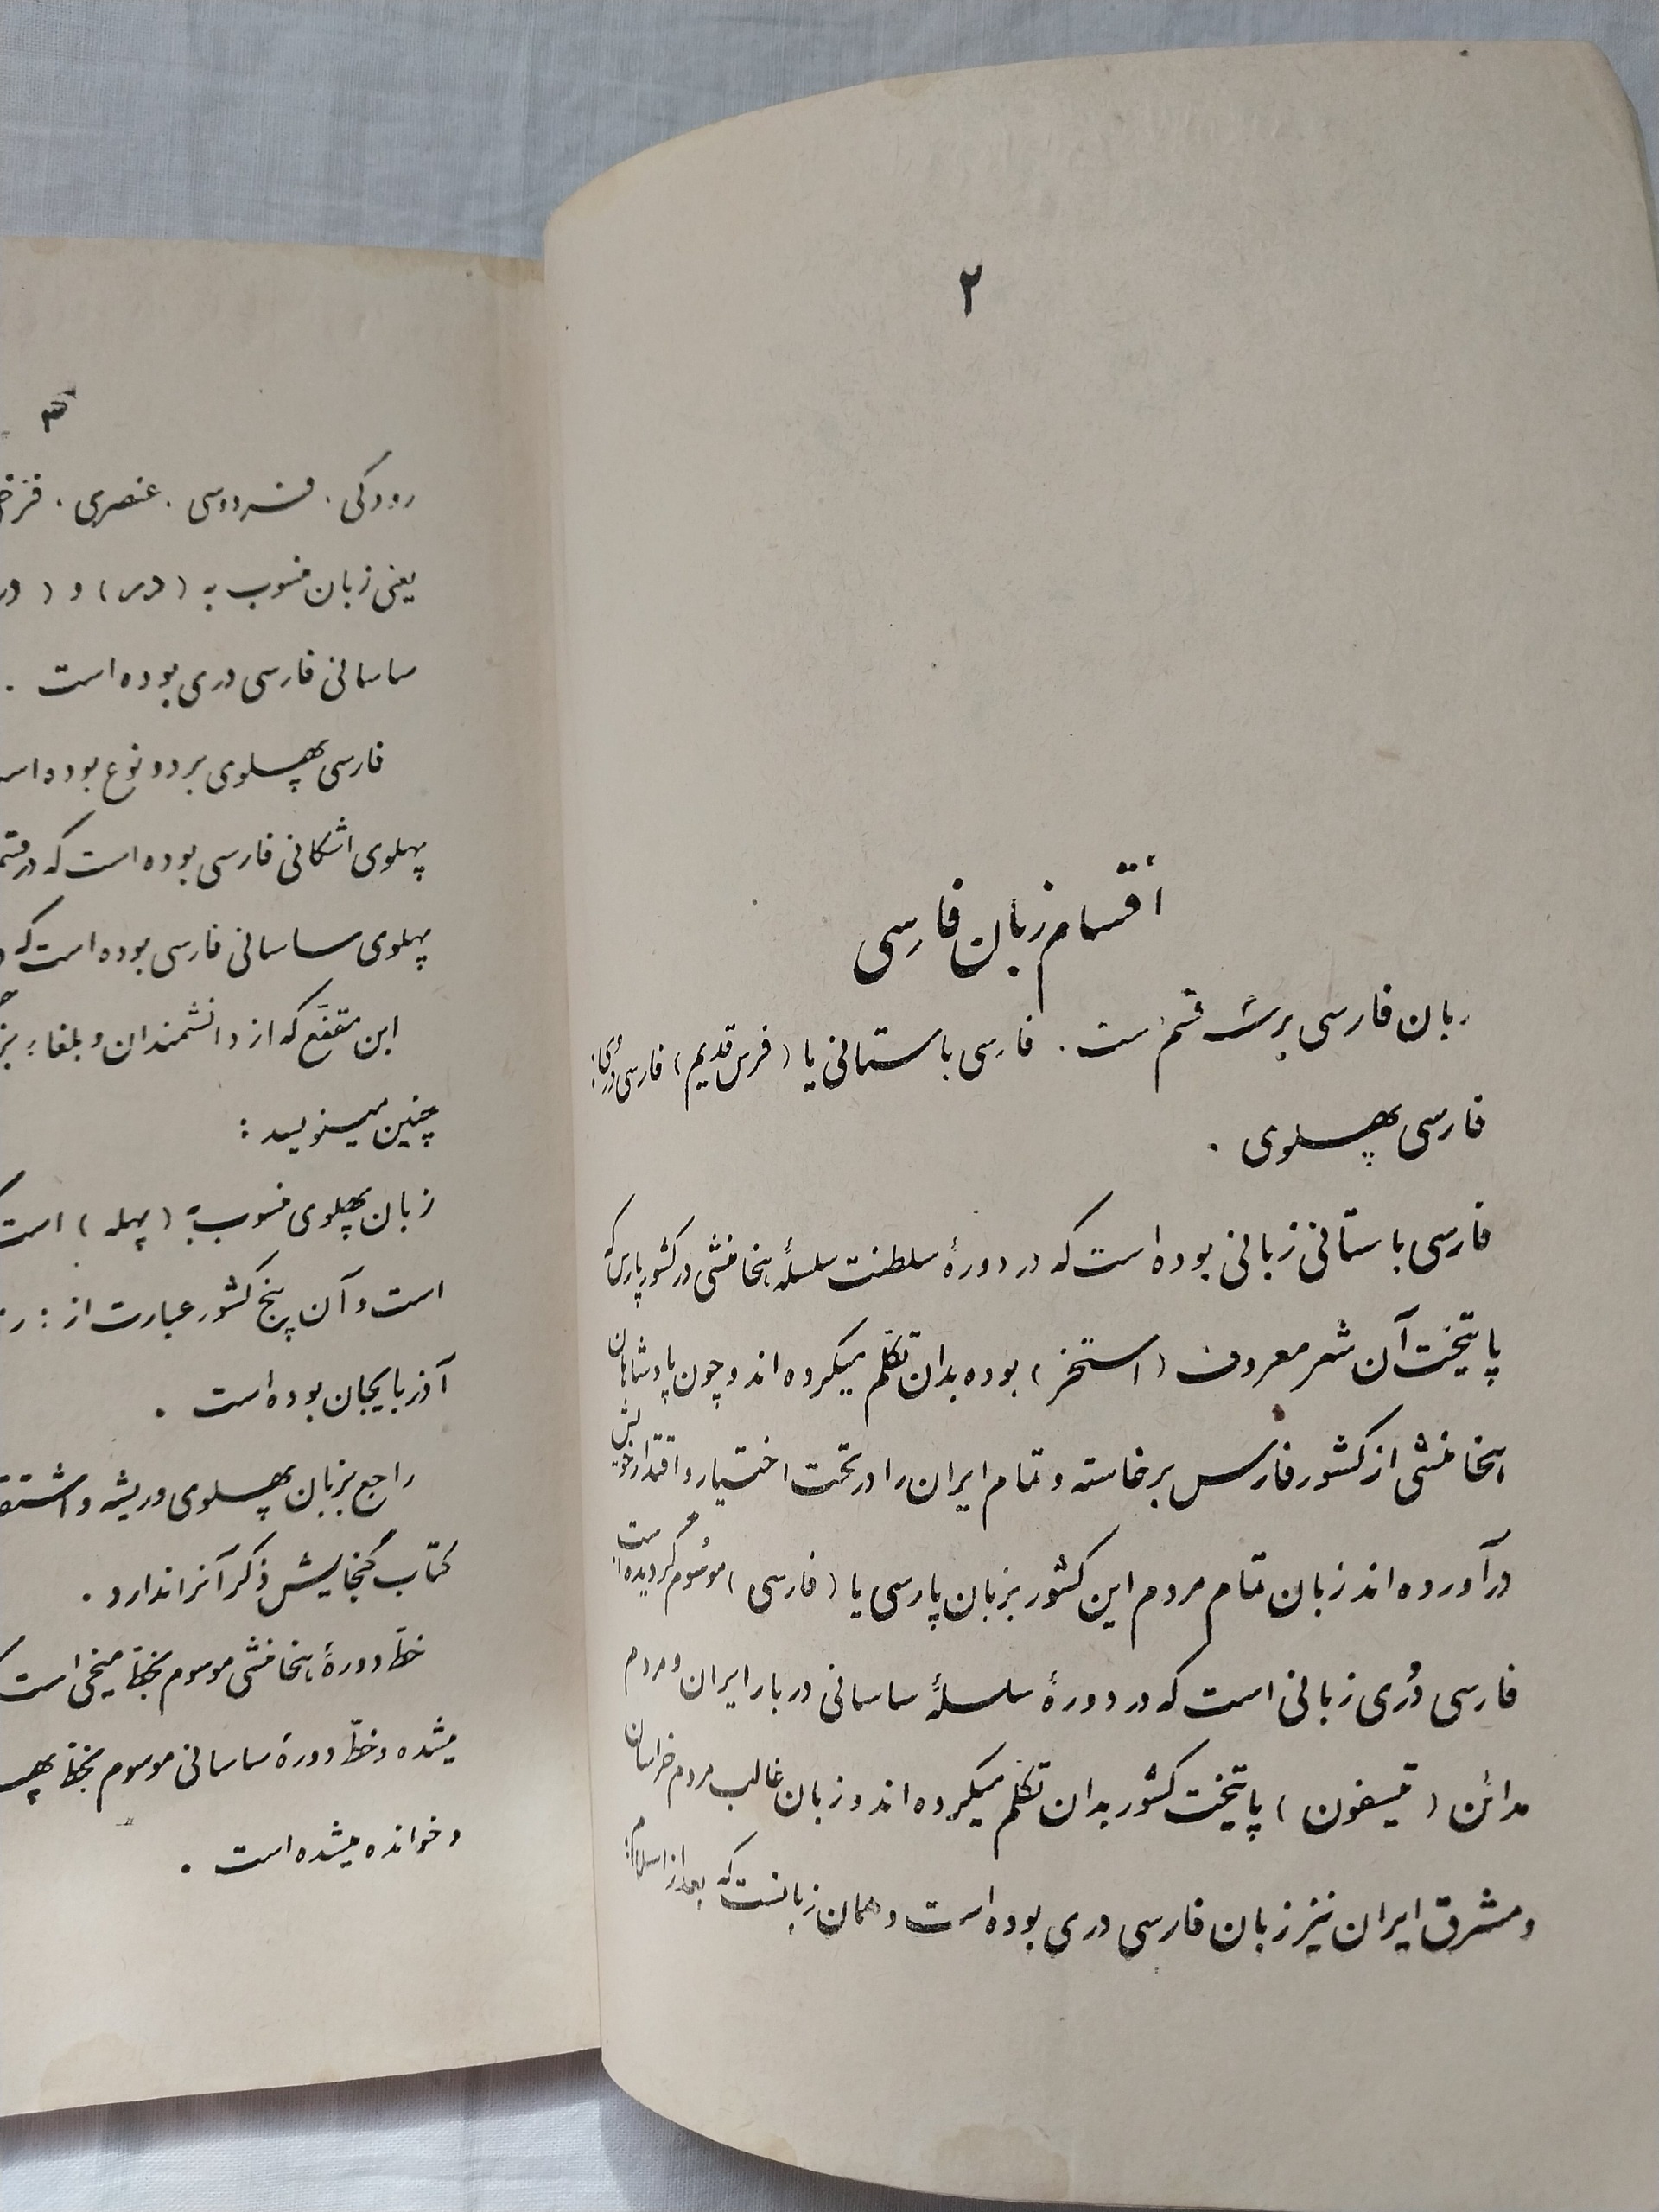 ۲
اقسام زبان فارسی
زبان فارسی بر سه قسم است . فارسی باستانی یا (فرس قدیم) فارسی دری .
فارسی پهلوی .
فارسی باستانی زبانی بوده است که در دورهٔ سلطنت سلسلهٔ هخامنشی در کشور پارس که
پایتخت آن شهر معروف (استخر) بوده بدان تکلّم میکرده اند و چون پادشاهان
هخامنشی از کشور فارس برخاسته و تمام ایران را در تحت اختیار و اقتدار خویش
درآورده اند زبان تمام مردم این کشور بزبان پارسی یا (فارسی) موسُوم گردیده است
فارسی دَری زبانی است که در دورهٔ سلسلهٔ ساسانی دربار ایران و مردم
مدائن (تیسفون) پایتخت کشور بدان تکلّم میکرده اند و زبان غالب مردم خراسان
و مشرق ایران نیز زبان فارسی دری بوده است و همان زبانست که بعد از اسلام
۳
رودکی . فردوسی . عنصری .
یعنی زبان منسوب به (در) و (
ساسانی فارسی دری بوده است .
فارسی پهلوی بر دو نوع بوده
پهلوی اشکانی فارسی بوده است که در
پهلوی ساسانی فارسی بوده است که
ابن مقفّع که از دانشمندان و بلغاء
چنین مینویسد :
زبان پهلوی منسوب به (پهله) است
است و آن پنج کشور عبارت از :
آذربایجان بوده است .
راجع بزبان پهلوی و ریشه و
کتاب گنجایش ذکر آنرا ندارد .
خطّ دورهٔ هخامنشی موسوم بخطّ میخی است
میشده و خطّ دورهٔ ساسانی موسوم بخطّ
و خوانده میشده است .